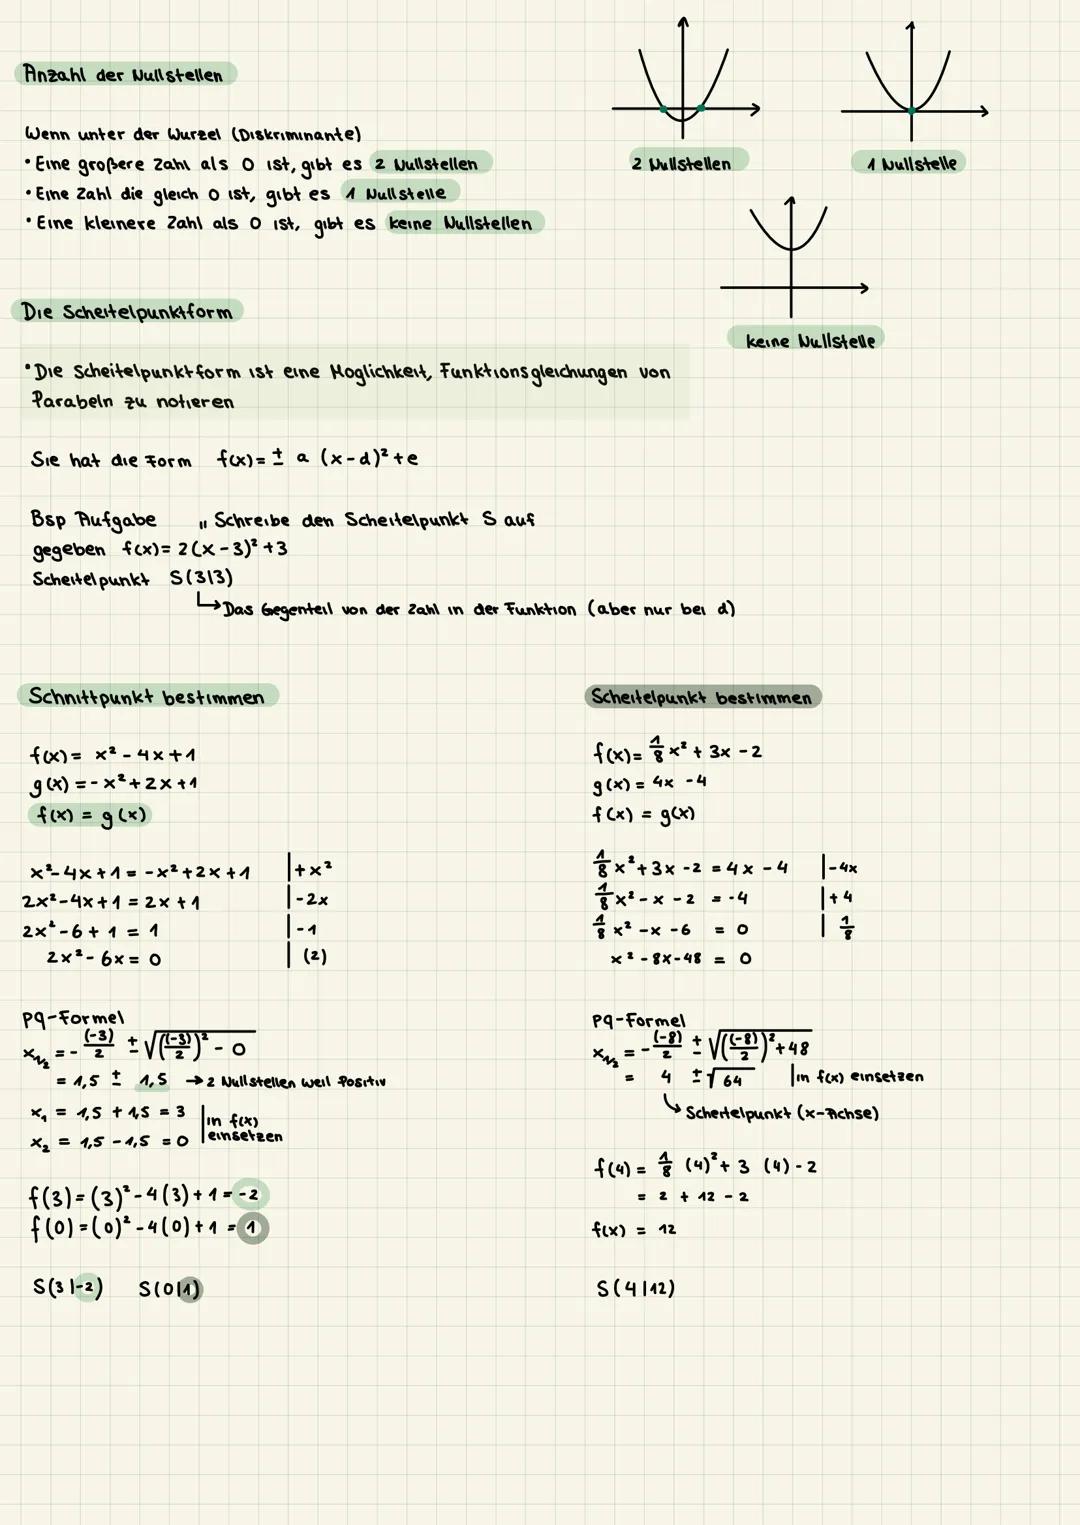 Anzahl der Nullstellen
Wenn unter der Wurzel (Diskriminante)
• Eine großere Zahl als 0 ist, gibt es 2 Nullstellen
• Eine Zahl die gleich 0 ist, gibt es 1 Nullstelle
• Eine kleinere Zahl als 0 ist, gibt es keine Nullstellen
2 Nullstellen
1 Nullstelle
keine Nullstelle
Die Scheitelpunktform
• Die Scheitelpunktform ist eine Moglichkeit, Funktionsgleichungen von
Parabeln zu notieren
Sie hat die Form f(x) = ± a (x-d)² + e
Bsp Aufgabe „ Schreibe den Scheitelpunkt S auf
gegeben f(x) = 2(x-3)² +3
Scheitelpunkt S(3|3)
↳ Das Gegenteil von der Zahl in der Funktion (aber nur bei d)
Schnittpunkt bestimmen
f(x) = x² - 4x + 1
g(x) = -x² + 2x + 1
f(x) = g(x)
x² - 4x + 1 = -x² + 2x + 1 | +x²
2x² - 4x + 1 = 2x + 1 | -2x
2x² - 6 + 1 = 1 | -1
2x² - 6x = 0 | (2)
pq-Formel
x₁/₂ = - (-3)/2 ± √((-3)/2)² - 0
= 1,5 ± 1,5 → 2 Nullstellen weil Positiv
x₁ = 1,5 + 1,5 = 3 | in f(x)
x₂ = 1,5 - 1,5 = 0 | einsetzen
f(3) = (3)² - 4(3) + 1 = -2
f(0) = (0)² - 4(0) + 1 = 1
S(3|-2) S(0|1)
Scheitelpunkt bestimmen
f(x) = 1/8 x² + 3x - 2
g(x) = 4x - 4
f(x) = g(x)
1/8 x² + 3x - 2 = 4x - 4 | -4x
1/8 x² - x - 2 = -4 | +4
1/8 x² - x - 6 = 0 | 1/8
x² - 8x - 48 = 0
pq-Formel
x₁/₂ = - (-8)/2 ± √((-8)/2)² + 48
= 4 ± √64 | in f(x) einsetzen
↳ Scheitelpunkt (x-Achse)
f(4) = 1/8 (4)² + 3 (4) - 2
= 2 + 12 - 2
f(x) = 12
S(4|12)